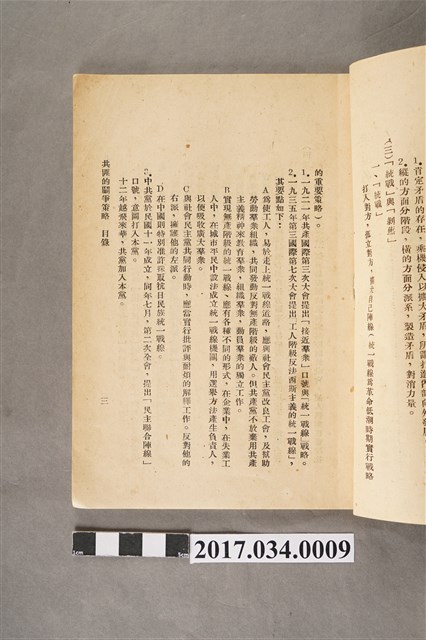 1.肯定矛盾的存在,乘機侵入以擴大矛盾,
2.縱的方面分階段,橫的方面分派系,製造矛盾,對消力量。
(三)「統戰」與「剝削」
一、「統戰」
打入對方,孤立對方,擴大自己陣線(統一戰線為革命低潮時期實行戰略
的重要策略)。
1.一九二一年共產國際第三次大會提出「接近羣衆」口號與「統一戰線」戰略。
2.一九三五年第三國際第七次大會提出「工人階級反法西斯主義的統一戰線」,
其要點如下:
A為使工人,易於走上統一戰線道路,應與社會民主黨改良工會,及幫助
勞動羣衆組織,共同發動反對無產階級的敵人。但共產黨不放棄用共產
主義精神來教育羣衆,組織羣衆,動員羣衆的獨立工作。
B實現無產階級的統一戰線、應有各種不同的形式,在企業中,在失業工
人中,在城市平民中設法成立統一戰線機關,用選舉方法產生負責人,
以便吸收廣大羣衆。
C與社會民主黨共同行動時,應當實行批評與耐煩的解釋工作。反對他的
右派,擁護他的左派。
D在中國則特別准許採取抗日民族統一戰線。
3.中共黨於民國十一年成立,同年七月,第二次全會,提出「民主聯合陣線」
口號,意圖打入本黨。
十二年越飛來華,共黨加入本黨。
共匪的鬪爭策略 目錄
三
1cm
5cm
2017.034.0009